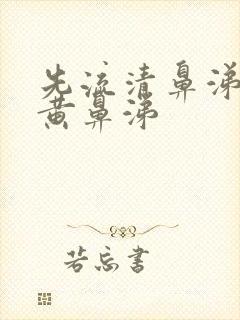 先流清鼻涕
黄鼻涕
若忘书